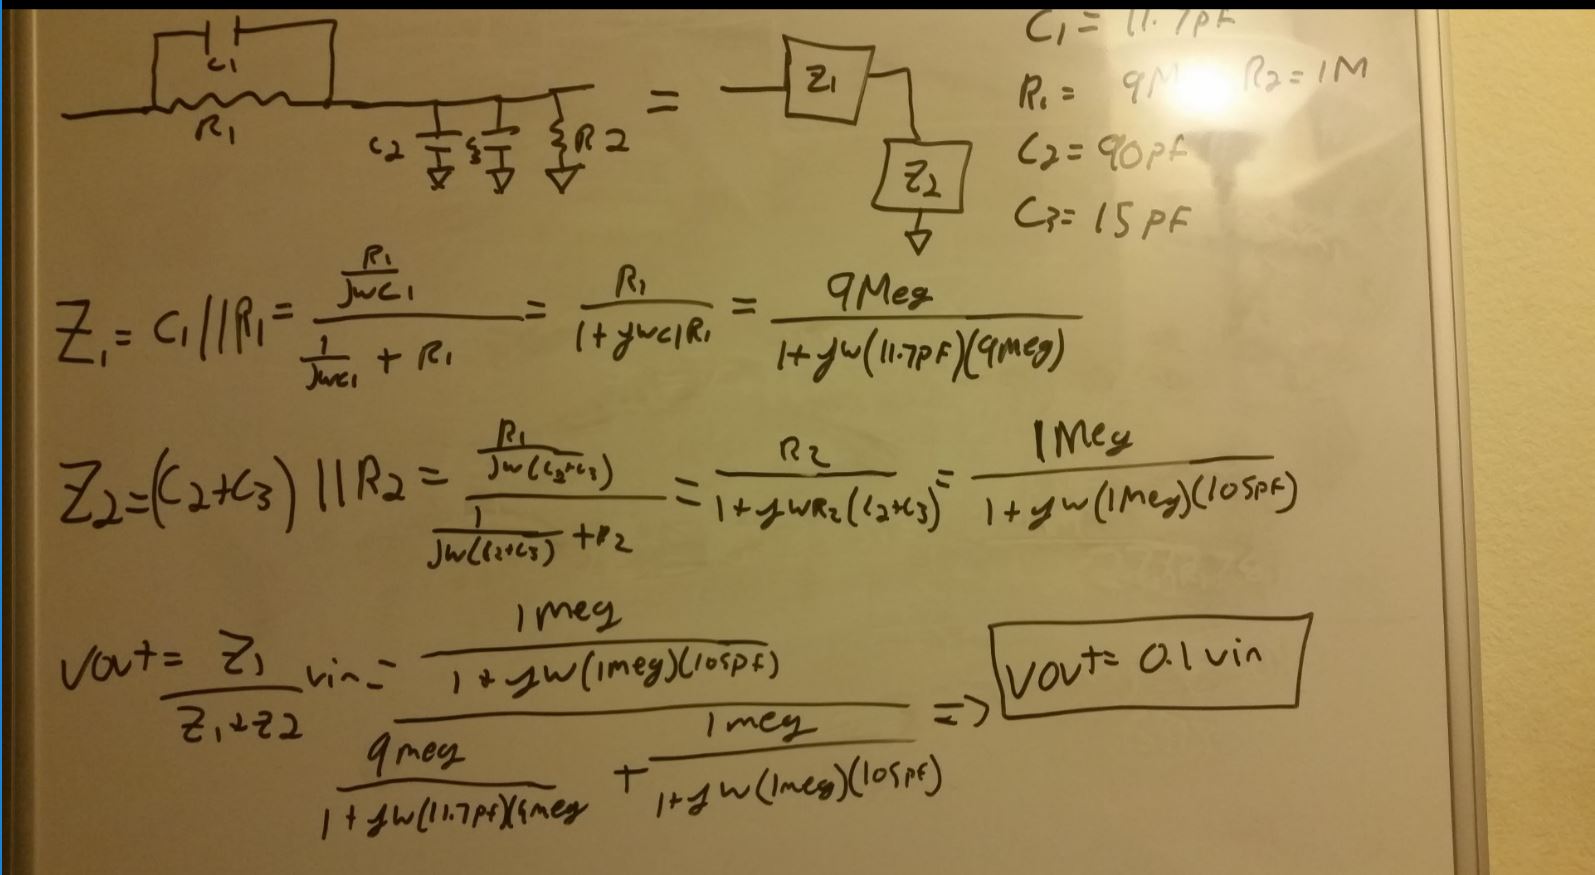 C1 = 11.7pF
C1
R1
C2 C3 R2
=
Z1
Z2
R1 = 9M R2 = 1M
C2 = 90pF
C3 = 15pF
Z1 = C1 || R1 = (R1/jwC1)/(1/jwC1 + R1) = R1/(1 + jwC1R1) = 9Meg/(1 + jw(11.7pF)(9meg))
Z2 = (C2+C3) || R2 = (R1/jw(C2+C3))/(1/jw(C2+C3) + R2) = R2/(1 + jwR2(C2+C3)) = 1Meg/(1 + jw(1Meg)(105pF))
Vout = Z1/(Z1+Z2) vin = (1meg/(1 + jw(1meg)(105pF)))/(9meg/(1 + jw(11.7pF)(9meg) + 1meg/(1 + jw(1meg)(105pF))) => Vout = 0.1 vin